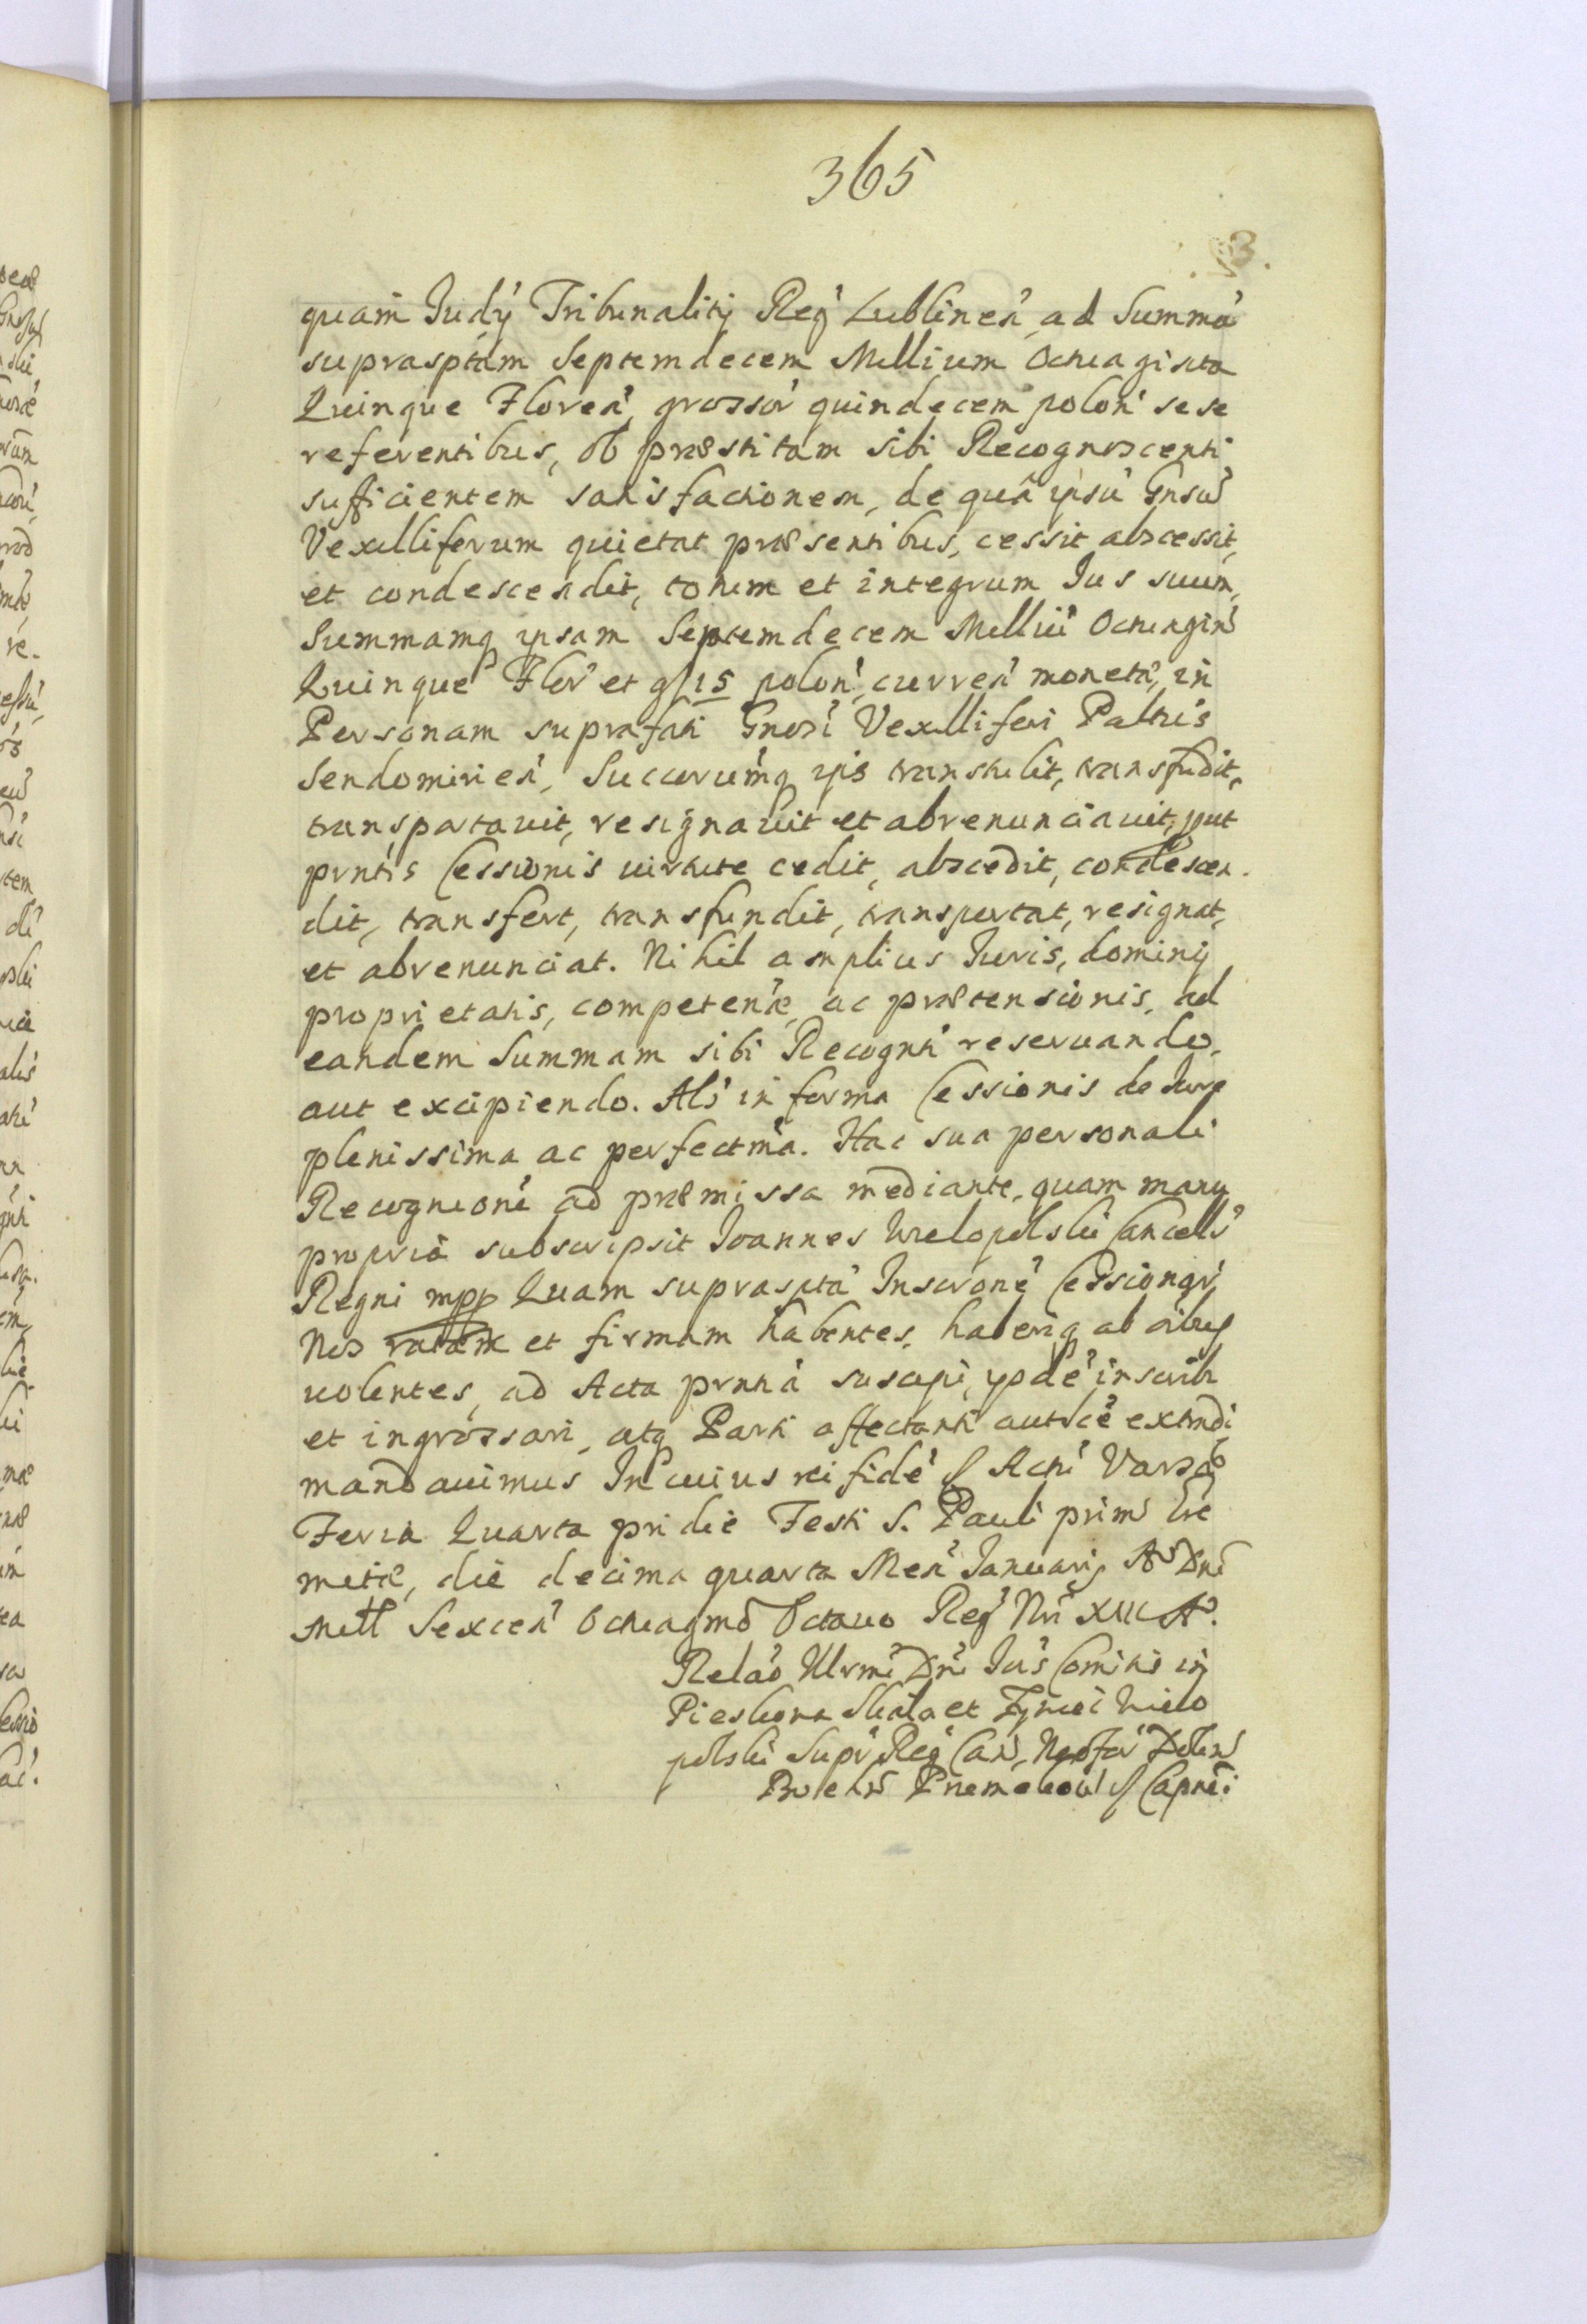 365
quam Iudÿ Tribunalitÿ Reg̃ Lublineñ ad Summã
supraspt̃am Septemdecem Millium Octuaginta
Quinque Floreñ, grossoř quindecem poloñ sese
referentibus, ob præstitam sibi Recognoscenti
sufficientem satisfactionem, de quâ ip̃su G̃nsũ
Vexilliferum quietat præsentibus, cessit abscessit,
et condescendit, totum et integrum Ius suum,
Summamq ipsam Septemdecem Milliũ Octuagin̄
Quinque Floř et g 15 poloñ, curreñ monetæ, in
Personam suprafati G̃nosi Vexilliferi Palt̃us
Sendomirieñ, Successorum̃q ip̃s transtulit, transfudit,
transportauit, resignauit et abrenunciauit, put
pr̃ntis Cessionis uirtute cedit, abscedit, condescen
dit, transfert, transfundit, transportat, resignat,
et abrenunciat. Nihil amplius Iuris, dominÿ
proprietatis, competen̄æ, ac prætensionis, ad
eandem Summam sibi Recognti reseruando,
aut excipiendo. Als̃ in forma Cessionis de Iure
plenissima ac perfectm̃a. Hac sua personali
Recognitione ad præmissa mediante, quam manu
propriâ subscripsit Ioannes Wielopolski Cancells̃
Regni mpp Quam supraspta Inscr̃one Cessiong̃
Nos ratam et firmam habentes, haberiq ab oïbus
uolentes, ad Acta pr̃ntiâ suscipi, ip̃sde inscribi
et ingrossari, atq Parti affectanti autsce extradi
mandauimus In cuius rei fide Acti Varsõ
Feria Quarta pridie Festi S. Pauli primi Ere
mitæ, die decima quarta Meñ Ianuarÿ Aõ Dni
Mill Sexceñ Octuagmõ Octauo Reg̃ Nri XIIII Aõ.
Relao Illrmi Dni Iõis Comitis in
Pieskowa Skala et Zyniec Wielo
polski Supr̃ Reg̃ Can,